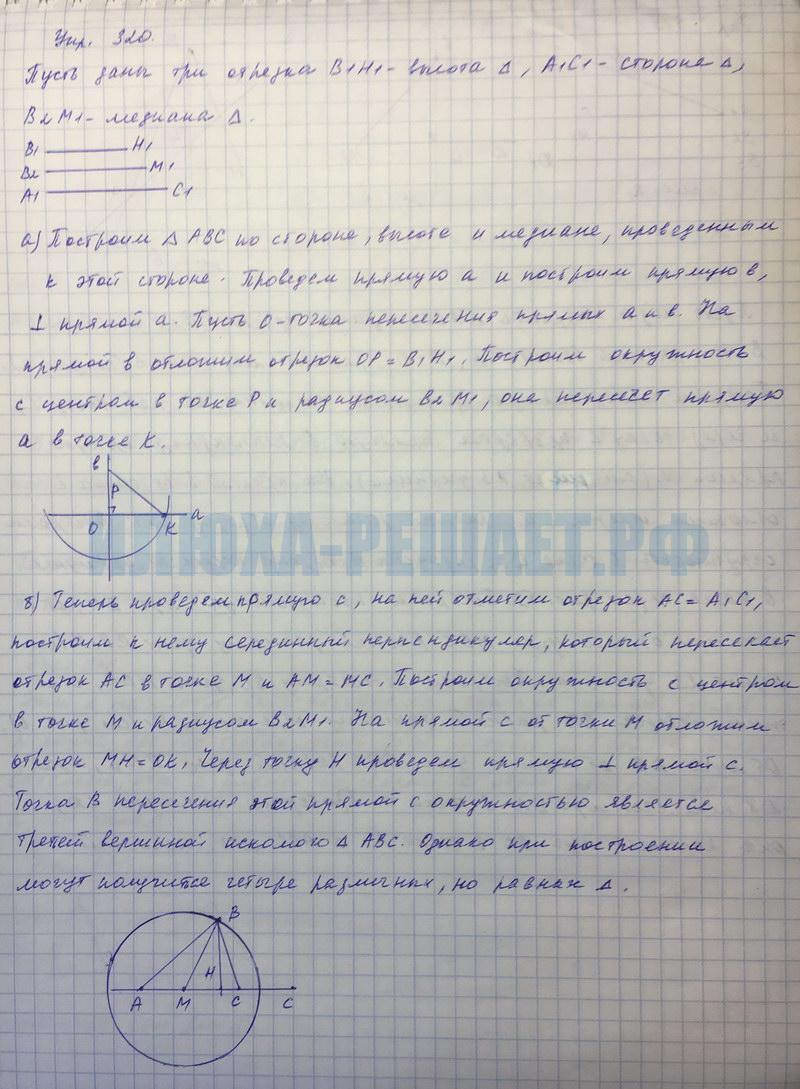 Упр. 320.
Пусть даны три отрезка B1H1 - высота Δ, A1C1 - сторона Δ,
B2M1 - медиана Δ.
B1 H1
B2 M1
A1 C1
а) Построим Δ ABC по стороне, высоте и медиане, проведенным
к этой стороне. Проведем прямую a и построим прямую в,
⊥ прямой a. Пусть O - точка пересечения прямых a и в. На
прямой в отложим отрезок OP = B1H1. Построим окружность
с центром в точке P и радиусом B2M1, она пересечет прямую
a в точке K.
в
P
O K a
ПЛЮХА-РЕШАЕТ.РФ
б) Теперь проведем прямую c, на ней отметим отрезок AC = A1C1,
построим к нему серединный перпендикуляр, который пересекает
отрезок AC в точке M и AM = MC. Построим окружность с центром
в точке M и радиусом B2M1. На прямой c от точки M отложим
отрезок MH = OK. Через точку H проведем прямую ⊥ прямой c.
Точка B пересечения этой прямой с окружностью является
третей вершиной искомого Δ ABC. Однако при построении
могут получится четыре различных, но равных Δ.
B
H
A M C C